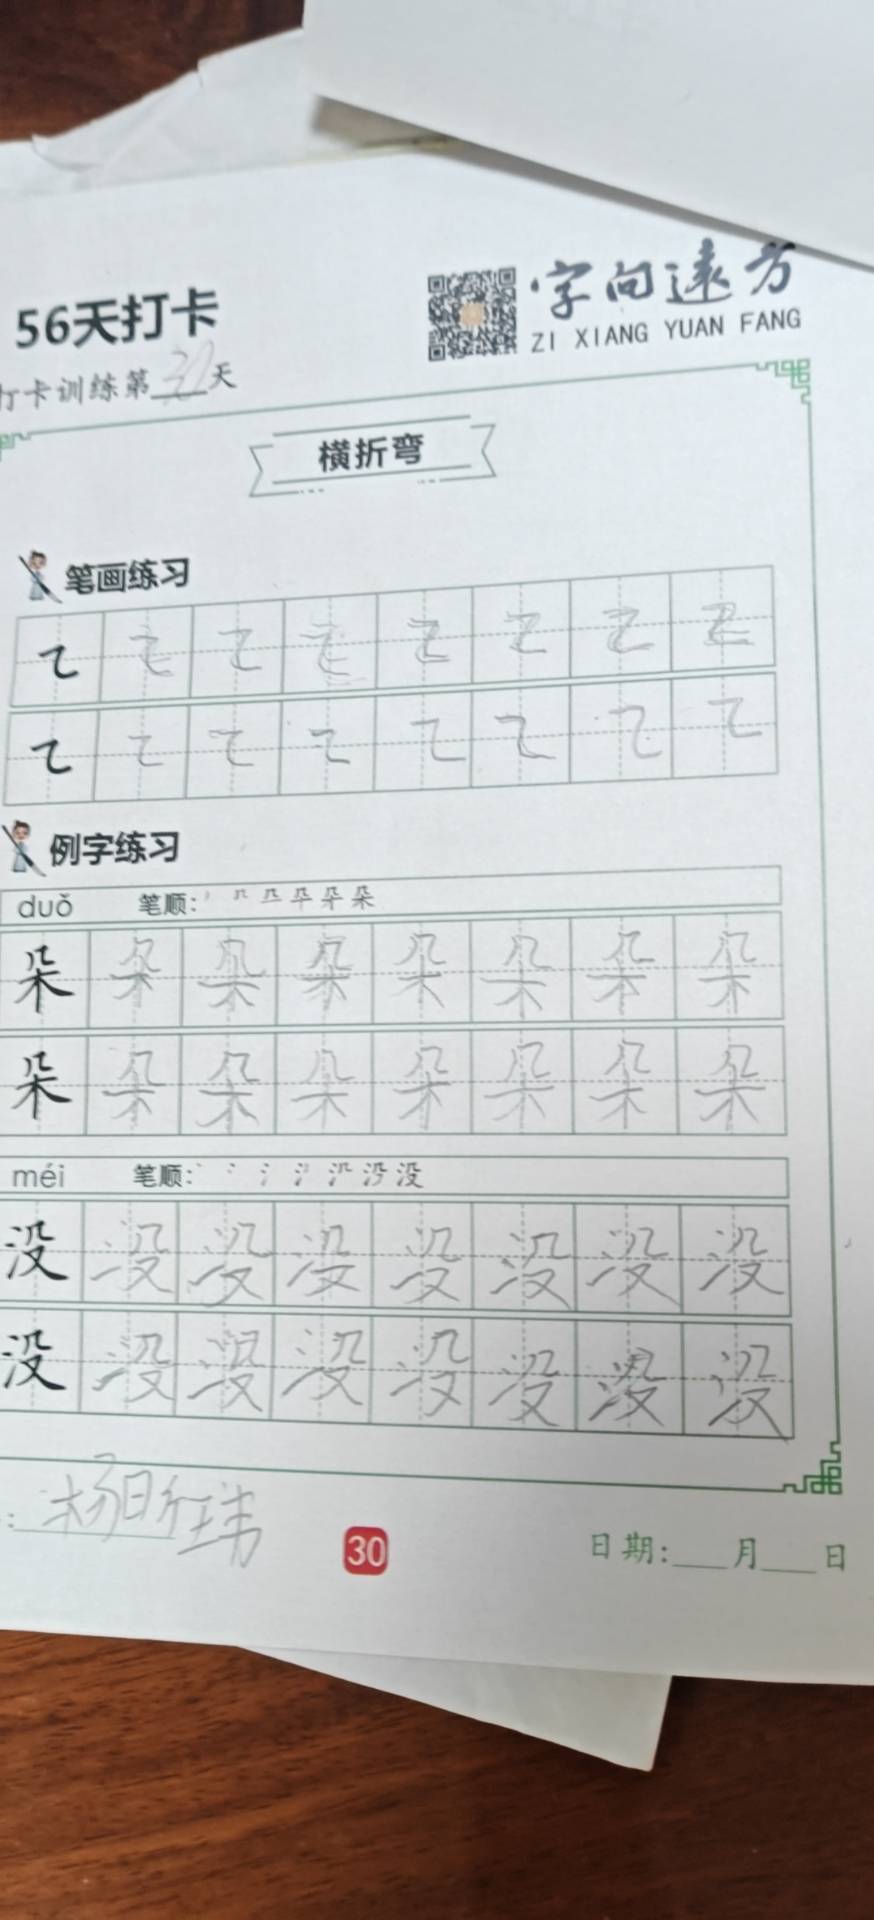 56天打卡
字向远方
ZI XIANG YUAN FANG
打卡训练第30天
横折弯
笔画练习
例字练习
duǒ 笔顺:
朵 朵 朵 朵 朵 朵 朵 朵
朵 朵 朵 朵 朵 朵 朵 朵
méi 笔顺:
没 没 没 没 没 没 没 没
没 没 没 没 没 没 没 没
30
日期:___月___日